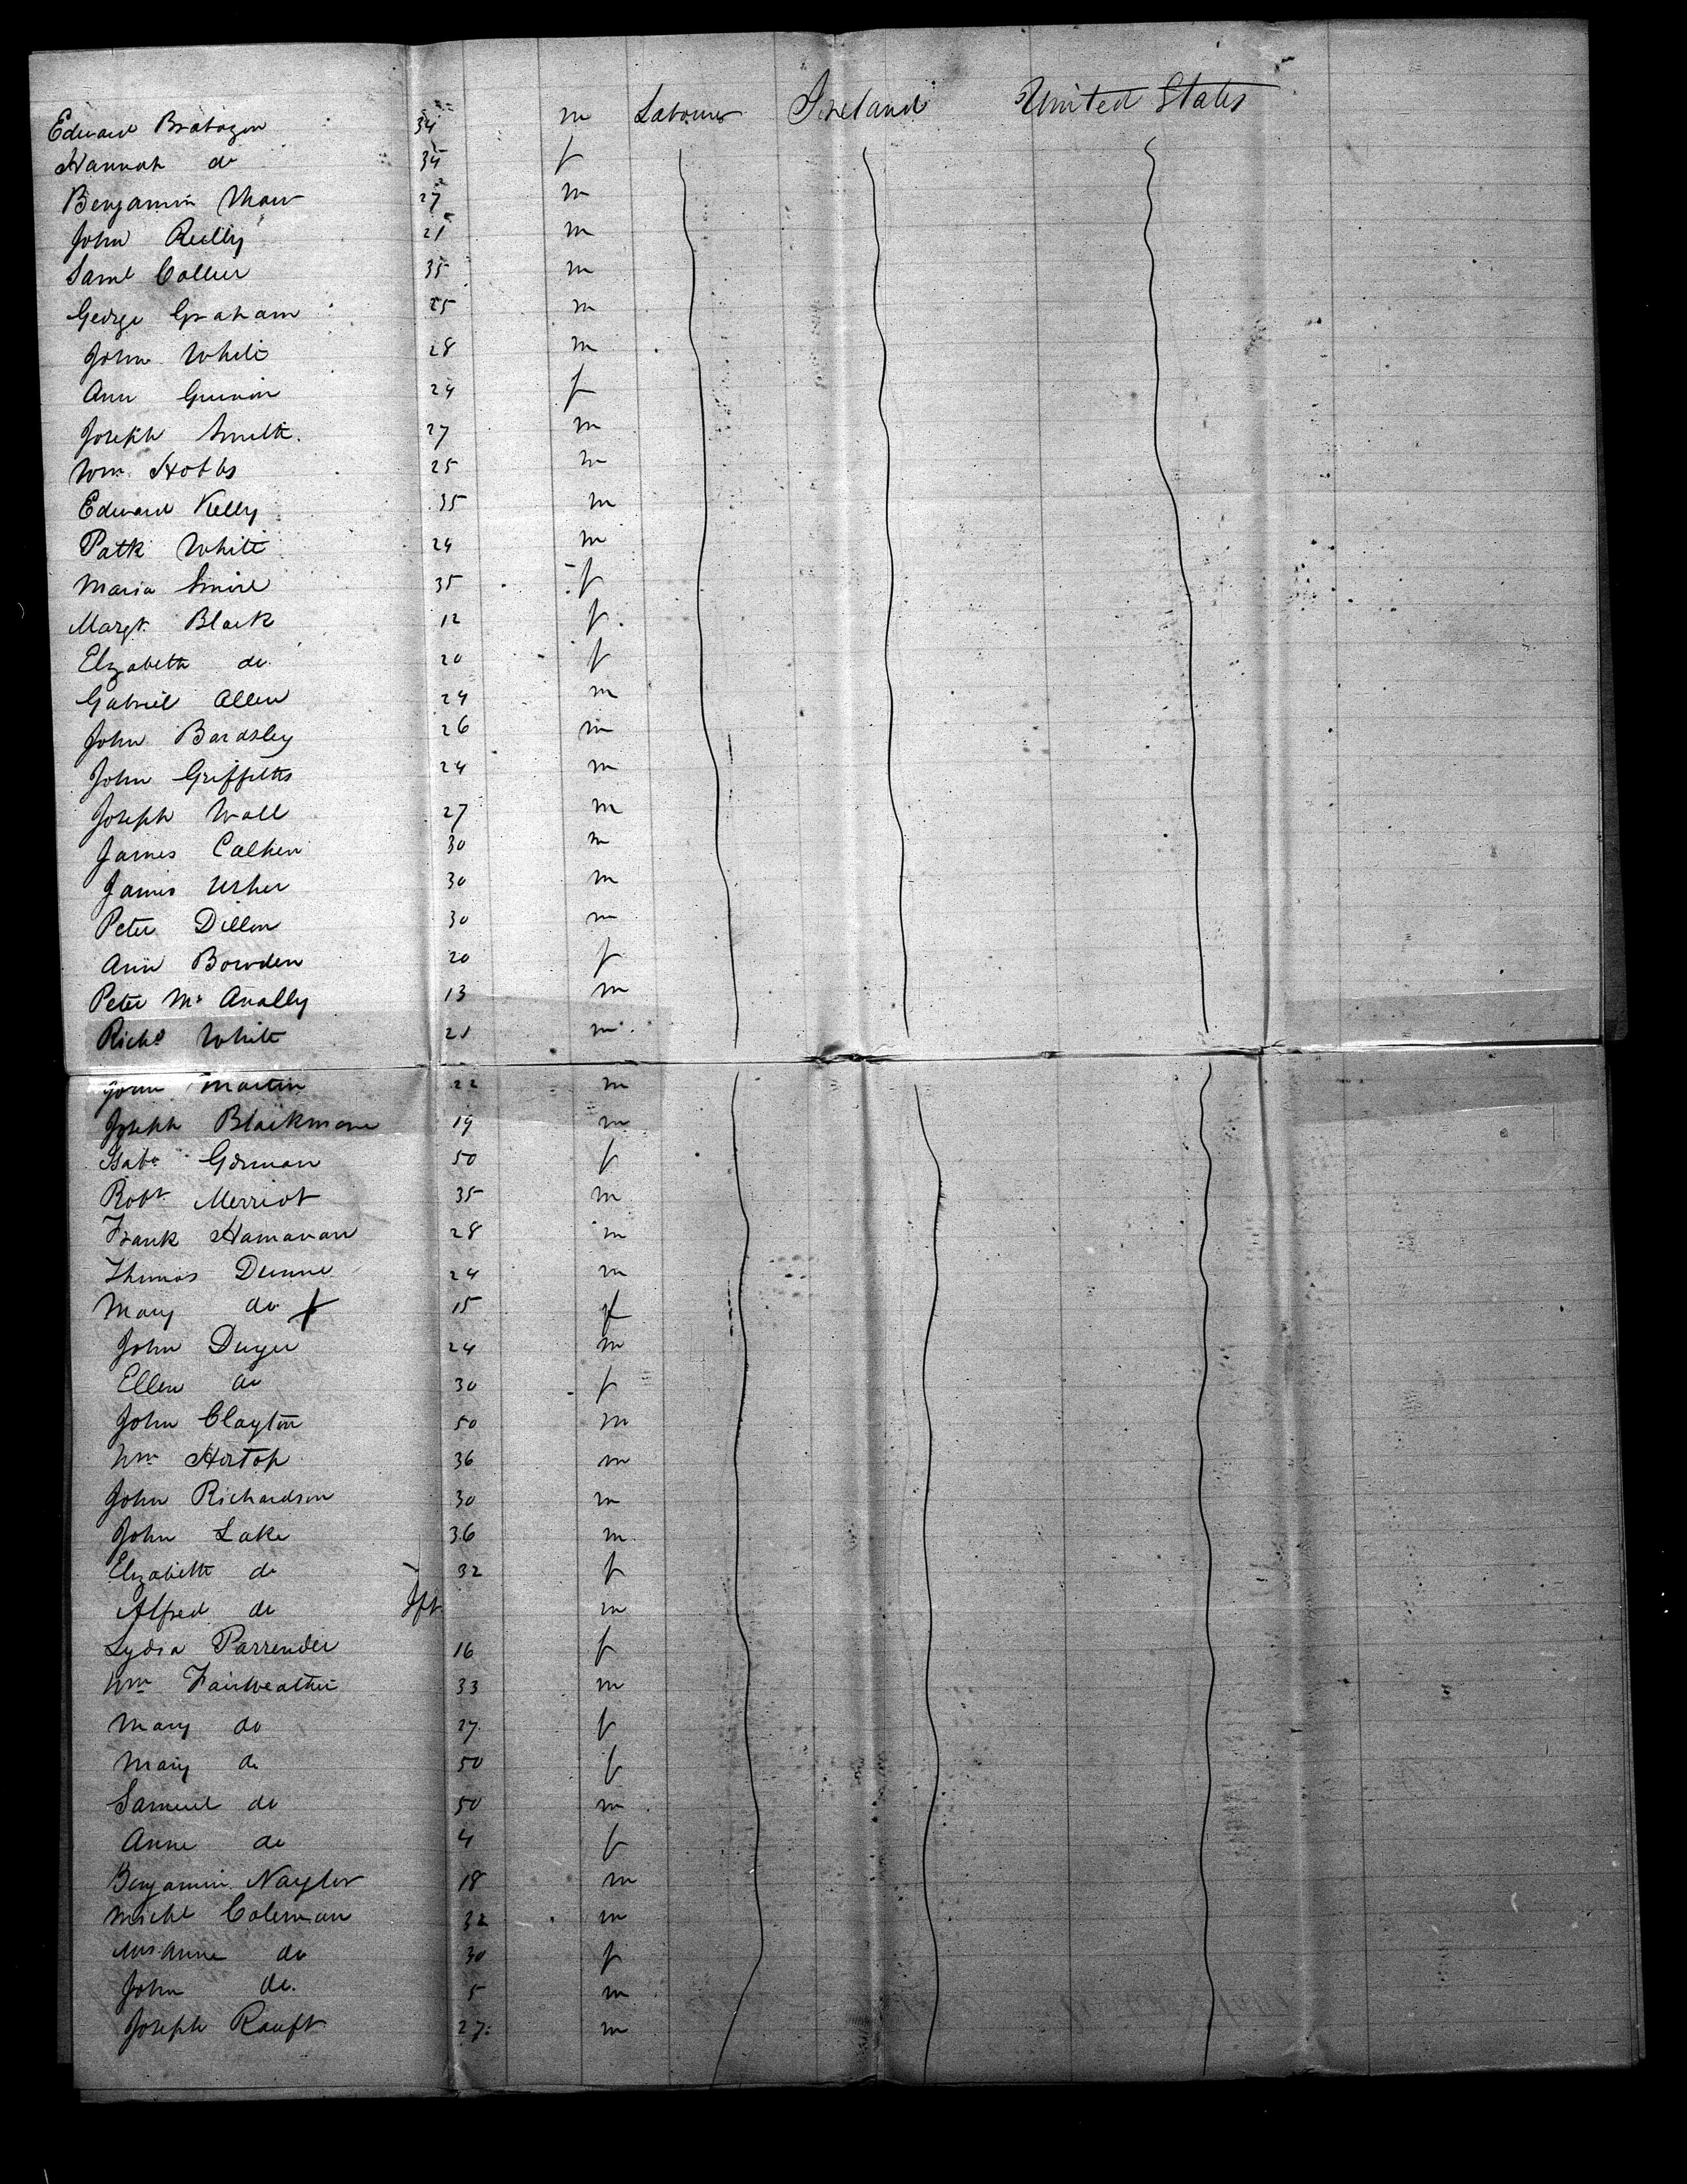 Edward Brabazon 34 m Labourer Ireland United States
Hannah do 34 f
Benjamin 27 m
John Reilly 21 m
Saml Collier 35 m
George Graham 25 m
John White 28 m
Ann 24 f
Joseph Smith. 27 m
Wm Hobbs 25 m
Edward Kelly 35 m
Patk White 24 m
Maria 35 f
Margt Black 12 f
Elizabeth do 20 f
Gabriel Allen 24 m
John Bardsley 26 m
John Griffiths 24 m
Joseph Wall 27 m
James 30 m
James Usher 30 m
Peter Dillon 30 m
Ann Bowden 20 f
Peter Mc Anally 13 m
Richd White 21 m
John Martin 22 m
Joseph Blackmore 19 m
Isaba Gorman 50 f
Robt Merriot 35 m
Frank Hamanan 28 m
Thomas Dunne 24 m
Mary do 15 f
John Dwyer 24 m
Ellen do 30 f
John Clayton 50 m
Wm Hortop 36 m
John Richardson 30 m
John Lake 36 m
Elizabeth do 32 f
Alfred do Jft m
Lydia Parrender 16 f
Wm Fairweather 33 m
Mary do 27 f
Mary do 50 f
Samuel do 50 m
Anne do 4 f
Benjamin Naylor 18 m
Michl Coleman 32 m
Mrs Anne do 30 f
John do. 5 m
Joseph 27 m